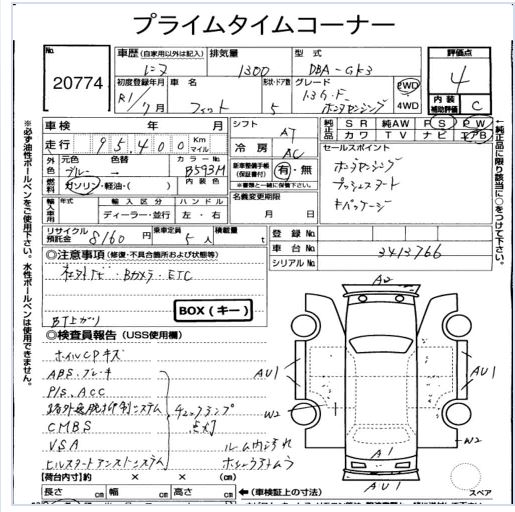 プライムタイムコーナー
No. 20774
車歴 (自家用以外は記入) レンタ
排気量 1300
型式 DBA-GK3
評価点 4
初度登録年月 R1/7月
車名 フィット
形状・ドア数 5
グレード 13G・F
ホンダセンシング
2WD
4WD
内装補助評価 C
車検 年 月
走行 95,400 Km マイル
シフト AT
冷房 AC
純正品 SR 純AW PS PW
カワ TV ナビ エアB
←純正品に限り該当に○をつけて下さい。
外色 元色 ブルー → 色替
カラーNo B593M
内装色
燃料 ガソリン・軽油・( )
新車整備手帳 (保証書付) 有・無
※書類と一緒に保管下さい。
セールスポイント
ホンダセンシング
プッシュスタート
Fパッケージ
輸入車用 年式 輸入区分 ディーラー・並行 ハンドル 左・右
名義変更期限 月 日
リサイクル預託金 8160円
乗車定員 5人
積載量 t
登録No.
車台No. 3413766
シリアルNo.
◎注意事項 (修復・不具合箇所および状態等)
社外ナビ・Bカメラ・ETC
BOX(キー)
BT上がり
◎検査員報告 (USS使用欄)
ホイルCPキズ
ABS、ブレーキ
P/S、ACC
路外逸脱抑制システム チェックランプ
CMBS 点灯
VSA ルーム内汚れ
ヒルスタートアシストシステム
A2
AU1
AU1
W2
W2
A1
AU1
スペア
【荷台内寸】約 × × (cm)
長さ cm 幅 cm 高さ cm ←(車検証上の寸法)
※必ず油性ボールペンをご使用下さい。水性ボールペンは使用できません。